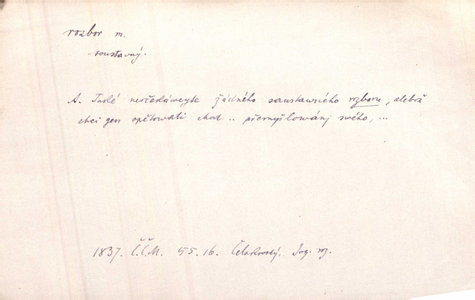 rozbor m.
soustavný.
A. Tudé neočekáweyte žádného saustawného rozboru, alebrž
chci gen opětowati chod .. přemyšlowánj swého, ...
1837. Č.Č.M. 45.16. Čelakovský.